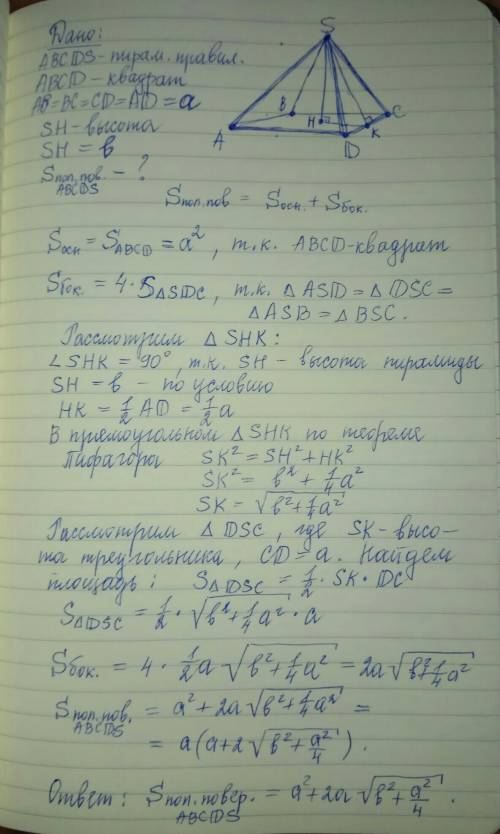 Дано:
ABCDS-пирам. правил.
ABCD-квадрат
AB=BC=CD=AD=a
SH-высота
SH=в
Sпол.пов. ABCDS - ?
S
A
B
H
C
K
D
Sпол.пов = Sосн. + Sбок.
Sосн = SABCD = a², т.к. ABCD-квадрат
Sбок. = 4·S△SDC, т.к. △ASD = △DSC =
△ASB = △BSC.
Рассмотрим △SHK:
∠SHK = 90°, т.к. SH - высота пирамиды
SH = в - по условию
HK = 1/2 AD = 1/2 a
В прямоугольном △SHK по теореме
Пифагора SK² = SH² + HK²
SK² = в² + 1/4 a²
SK = √(в² + 1/4 a²)
Рассмотрим △DSC, где SK-высо-
та треугольника, CD = a. Найдем
площадь: S△DSC = 1/2 · SK · DC
S△DSC = 1/2 · √(в² + 1/4 a²) · a
Sбок. = 4 · 1/2 a √(в² + 1/4 a²) = 2a √(в² + 1/4 a²)
Sпол.пов. ABCDS = a² + 2a √(в² + 1/4 a²) =
= a(a + 2 √(в² + a²/4)).
Ответ: Sпол.повер. ABCDS = a² + 2a √(в² + a²/4).